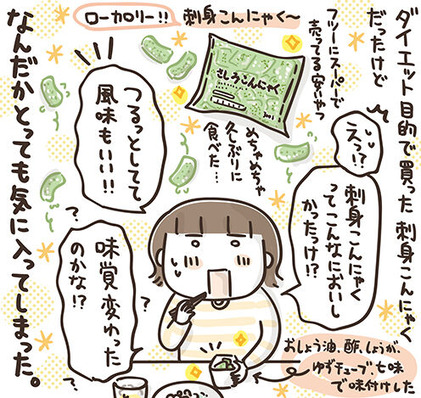 ダイエット目的で買った刺身こんにゃく
だったけど
フツーにスーパーで
売ってる安いやつ
ローカロリー!! 刺身こんにゃく〜
さしみこんにゃく
めちゃめちゃ
久しぶりに
食べた…
えっ!?
刺身こんにゃく
ってこんなにおいし
かったっけ!?
つるっとしてて
風味もいい!!
味覚変わった
のかな!?
おしょう油、酢、しょうが、
ゆずチューブ、七味
で味付けした
なんだかとっても気に入ってしまった。